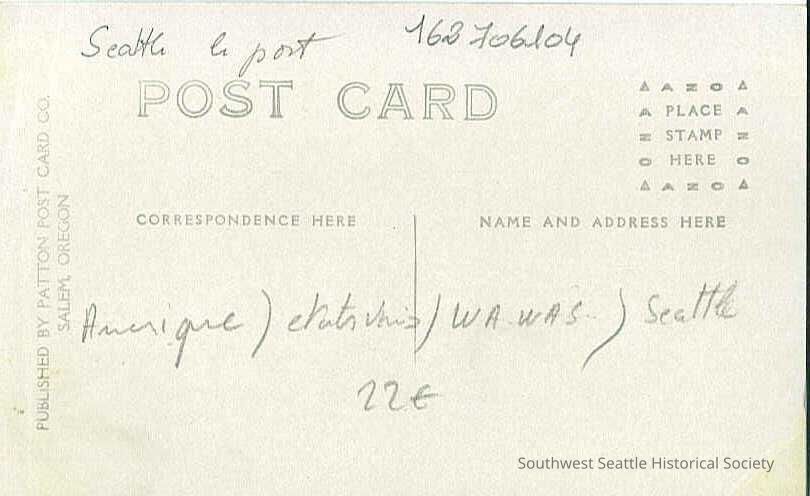 Seattle le port 162706104
POST CARD
PUBLISHED BY PATTON POST CARD CO.
SALEM, OREGON
AZO
PLACE
STAMP
HERE
AZO
CORRESPONDENCE HERE
NAME AND ADDRESS HERE
Amerique ) etats Unis / WA. WAS.. ) Seattle
22€
Southwest Seattle Historical Society